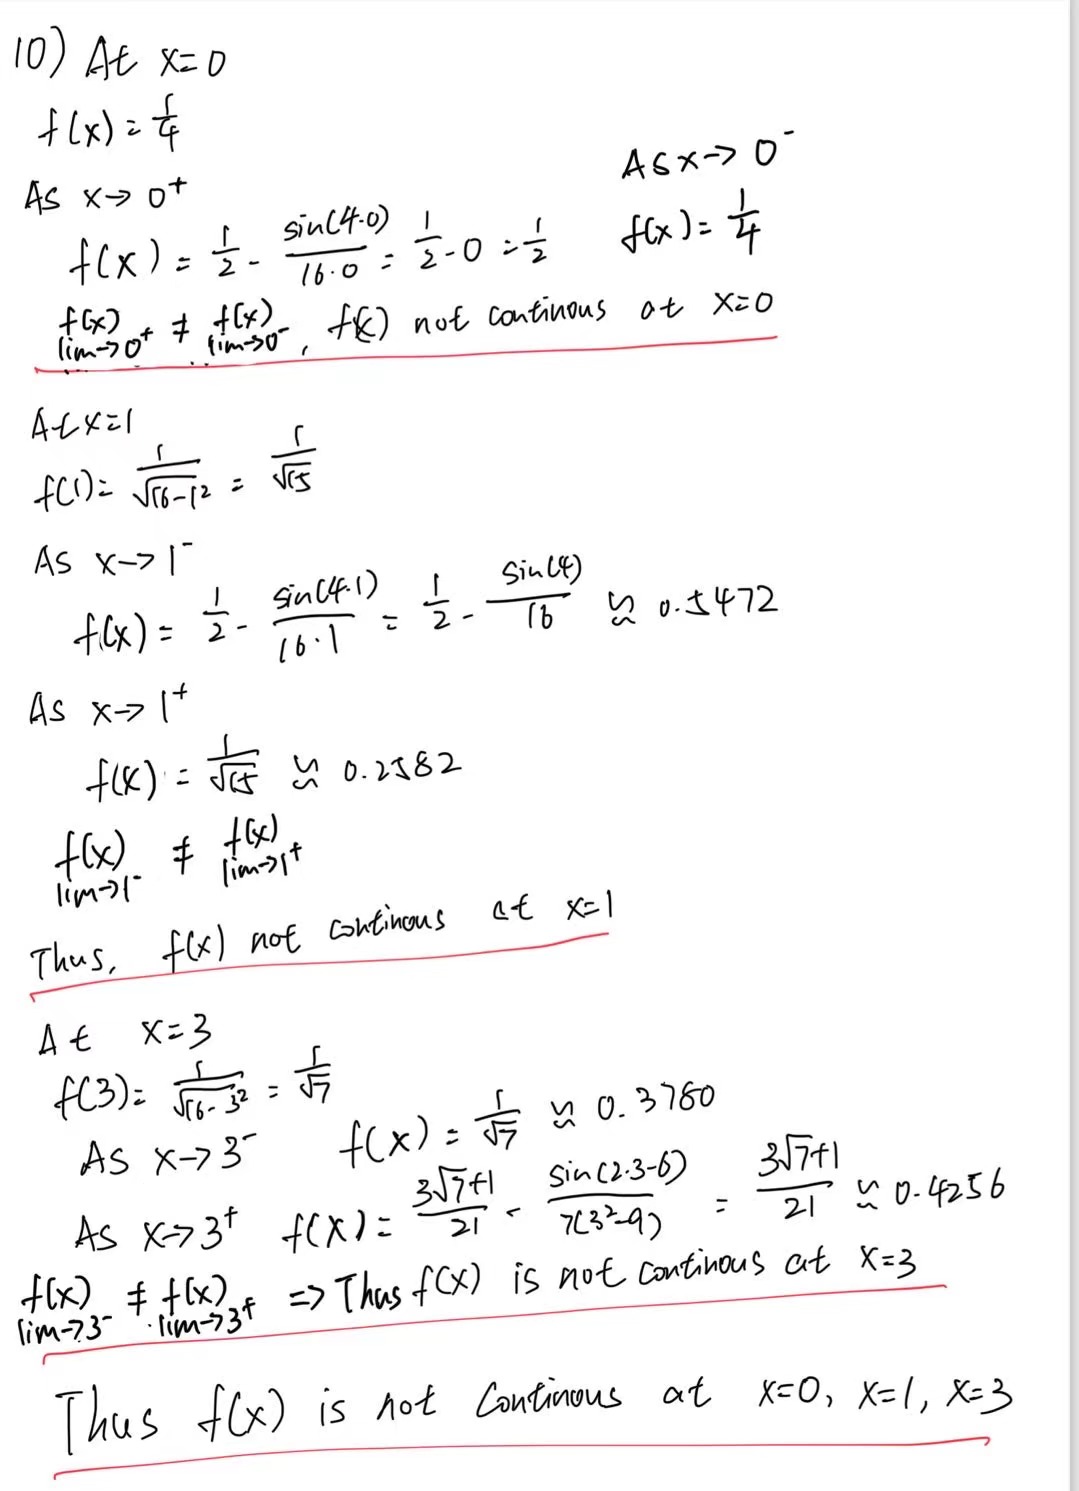 10) At x=0
f(x) = 1/4
As x→0⁺
f(x) = 1/2 - sin(4·0)/16·0 = 1/2 - 0 = 1/2
As x→0⁻
f(x) = 1/4
f(x) lim→0⁺ ≠ f(x) lim→0⁻, f(x) not continous at x=0
At x=1
f(1) = 1/√16-1² = 1/√15
As x→1⁻
f(x) = 1/2 - sin(4·1)/16·1 = 1/2 - sin(4)/16 ≈ 0.5472
As x→1⁺
f(x) = 1/√15 ≈ 0.2582
f(x) lim→1⁻ ≠ f(x) lim→1⁺
Thus, f(x) not continous at x=1
At x=3
f(3) = 1/√16-3² = 1/√7
As x→3⁻ f(x) = 1/√7 ≈ 0.3780
As x→3⁺ f(x) = 3√7+1/21 - sin(2·3-6)/7(3²-9) = 3√7+1/21 ≈ 0.4256
f(x) lim→3⁻ ≠ f(x) lim→3⁺ => Thus f(x) is not continous at x=3
Thus f(x) is not continous at x=0, x=1, x=3